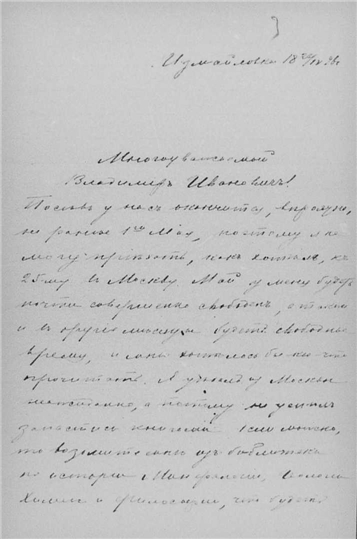 Измайловка 18
Многоуважаемый
Владимиръ Ивановичъ!
Посѣвъ у насъ окончится, вѣроятно,
не ранѣе 1го Мая, поэтому я не
могу пріѣхать, какъ хотѣлъ, къ
25му въ Москву. Май у меня будетъ
почти совершенно свободенъ,
и въ другіе мѣсяцы будетъ свободное
время, и мнѣ хотѣлось бы кое что
прочитать. Я уѣхалъ изъ Москвы
а потому не успѣлъ
запастись книгами. Если можно,
то возьмите мнѣ изъ библіотеки
по исторіи Минералогіи,
Химіи и Философіи, что будетъ